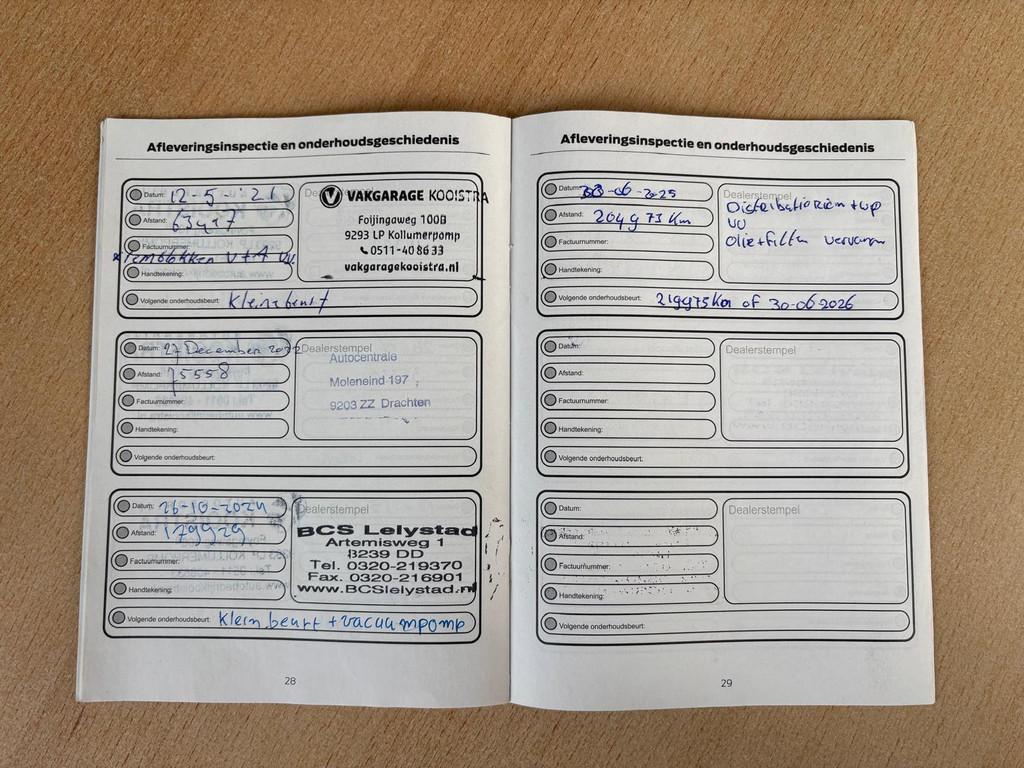 Afleveringsinspectie en onderhoudsgeschiedenis
Datum: 12-5-'21
Afstand:
Factuurnummer:
remblokken V+A VV
Handtekening:
Volgende onderhoudsbeurt: Kleine beurt
VAKGARAGE KOOISTRA
Foijingaweg 100B
9293 LP Kollumerpomp
0511-40 86 33
vakgaragekooistra.nl
Datum: 27 December 2022
Afstand: 75558
Factuurnummer:
Handtekening:
Volgende onderhoudsbeurt:
Dealerstempel
Autocentrale
Moleneind 197
9203 ZZ Drachten
Datum: 26-10-2024
Afstand: 179929
Factuurnummer:
Handtekening:
Volgende onderhoudsbeurt: Klein beurt + vacuumpomp
Dealerstempel
BCS Lelystad
Artemisweg 1
8239 DD
Tel. 0320-219370
Fax. 0320-216901
www.BCSlelystad.nl
28
Afleveringsinspectie en onderhoudsgeschiedenis
Datum: 30-06-2025
Afstand: 204973 Km
Factuurnummer:
Handtekening:
Volgende onderhoudsbeurt: 219975 Km of 30-06-2026
Dealerstempel
Distributie Riem + wp
VV
olie+filter vervangen
Datum:
Afstand:
Factuurnummer:
Handtekening:
Volgende onderhoudsbeurt:
Dealerstempel
Datum:
Afstand:
Factuurnummer:
Handtekening:
Volgende onderhoudsbeurt:
Dealerstempel
29